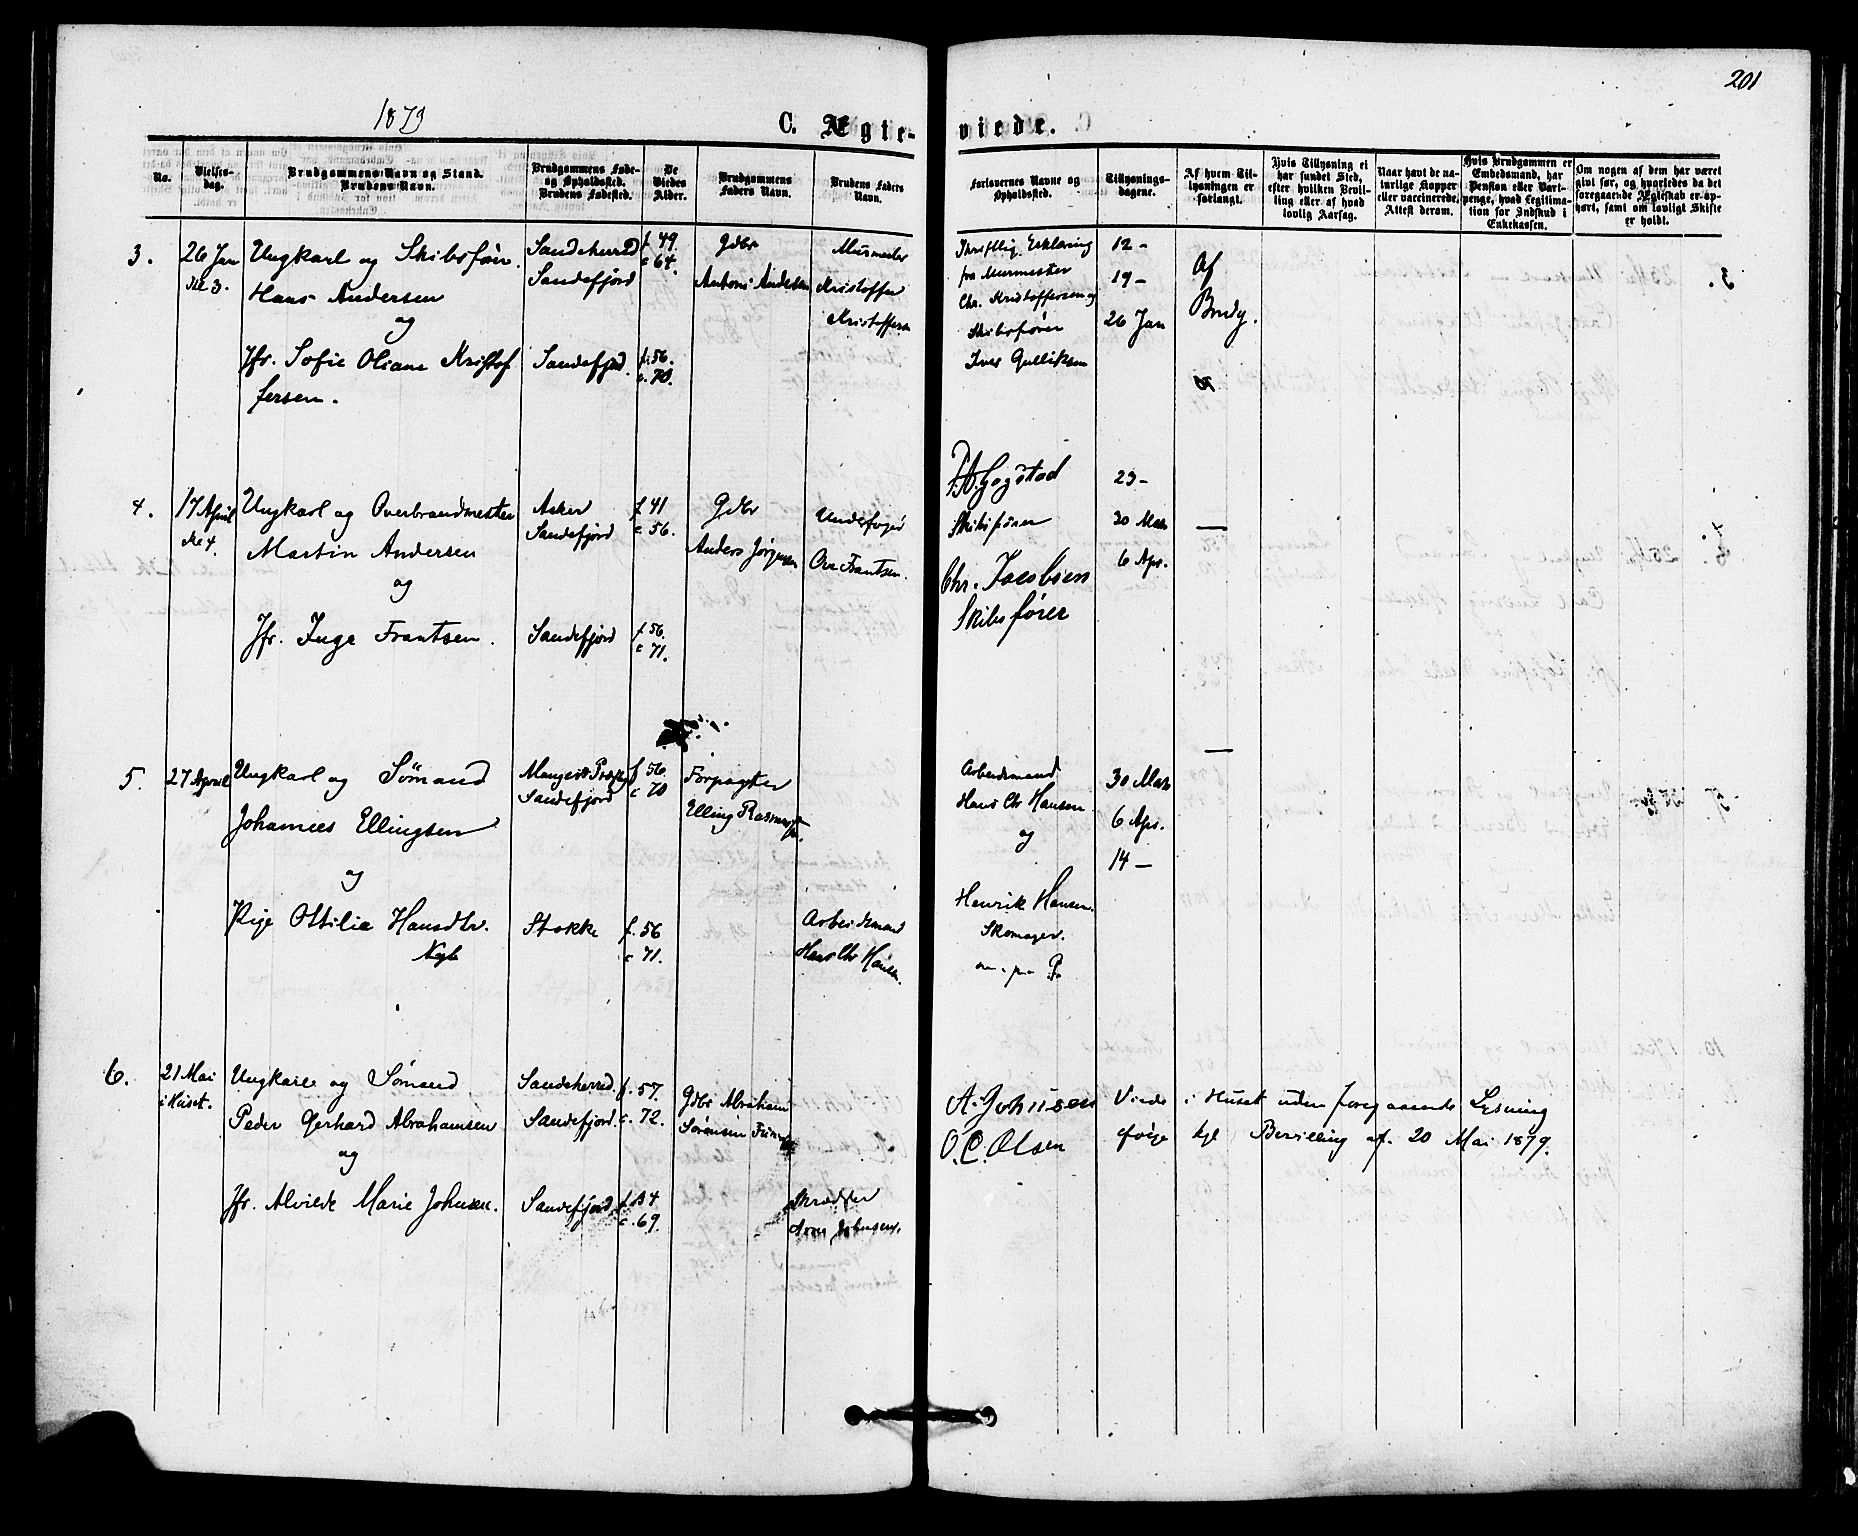 201
1879
C. Ægte-viede.
No.
Vielses-dag.
Brudgommens Navn og Stand.
Brudens Navn.
Brudgommens Føde-
og Opholdssted.
Brudens Fødested.
De
Viedes
Alder.
Brudgommens
Faders Navn.
Brudens Faders
Navn.
Forlovernes Navne og
Opholdssted.
Tillysnings-
dagene.
Af hvem Til-
lysningen er
forlangt.
Hvis Tillysning ei
har fundet Sted,
efter hvilken Bevil-
ling eller af hvad
lovlig Aarsag.
Naar havt de na-
turlige Kopper
eller vaccinerede,
Attest derom.
Hvis Brudgommen er
Embedsmand, har
Pension eller Vart-
penge, hvad Legitima-
tion for Indskud i
Enkekassen.
Om nogen af dem har været
givt før, og hvorledes da det
foregaaende Ægteskab er op-
hørt, samt om lovligt Skifte
er holdt.
3.
26 Jan
Kl 3.
Ungkarl og Skibsfører
Hans Andersen
og
Jfr. Sofie Oliane Kristof
fersen.
Sandeherred
Sandefjord
Sandefjord.
f. 49.
c 64.
f. 56.
c. 70.
Gdbr
Antoni Andersen
Murmester
Kristoffer
Kristoffersen
Skriftlig Erklæring
fra Murmester
Chr. Kristoffersen og
Skibsfører
Iver Gulliksen
12 –
19 –
26 Jan
Af
Brudg.
4.
17 April
Kl 4.
Ungkarl og Overbrandmester
Martin Andersen
og
Jfr. Inge Frantsen.
Asker
Sandefjord
Sandefjord
f. 41
c 56.
f. 56.
c 71.
Gdbr
Anders Jørgensen
Underfoged
Ove Frantsen.
F. A. Gogstad
Skibsfører
Chr. Jacobsen
Skibsfører
23 –
30 Mars
6 Apr.
—
5.
27 April
Ungkarl og Sømand
Johannes Ellingsen
og
Pige Ottilia Hansdtr.
Sandefjord
Stokke
f 56.
c 70
f. 56
c 71.
Forpagter
Elling Rasmussen.
Arbeidsmand
Hans Chr Hansen.
Arbeidsmand
Hans Chr Hansen
og
Henrik Hansen.
Skomager.
m. p. P.
30 Mars
6 Apr.
14 –
—
6.
21 Mai
i Huset.
Ungkarl og Sømand
Peder Gerhard Abrahamsen
og
Jfr. Alvilde Marie Johnsen.
Sandeherred.
Sandefjord.
Sandefjord
f. 57.
c. 72.
f. 54
c. 69.
Gdbr Abraham
Sørensen
Skrædder
Johnsen.
A. Johnsen
O. C. Olsen
Viede i Huset uden foregaaende Lysning
ifølge kgl Bevilling af 20 Mai 1879.